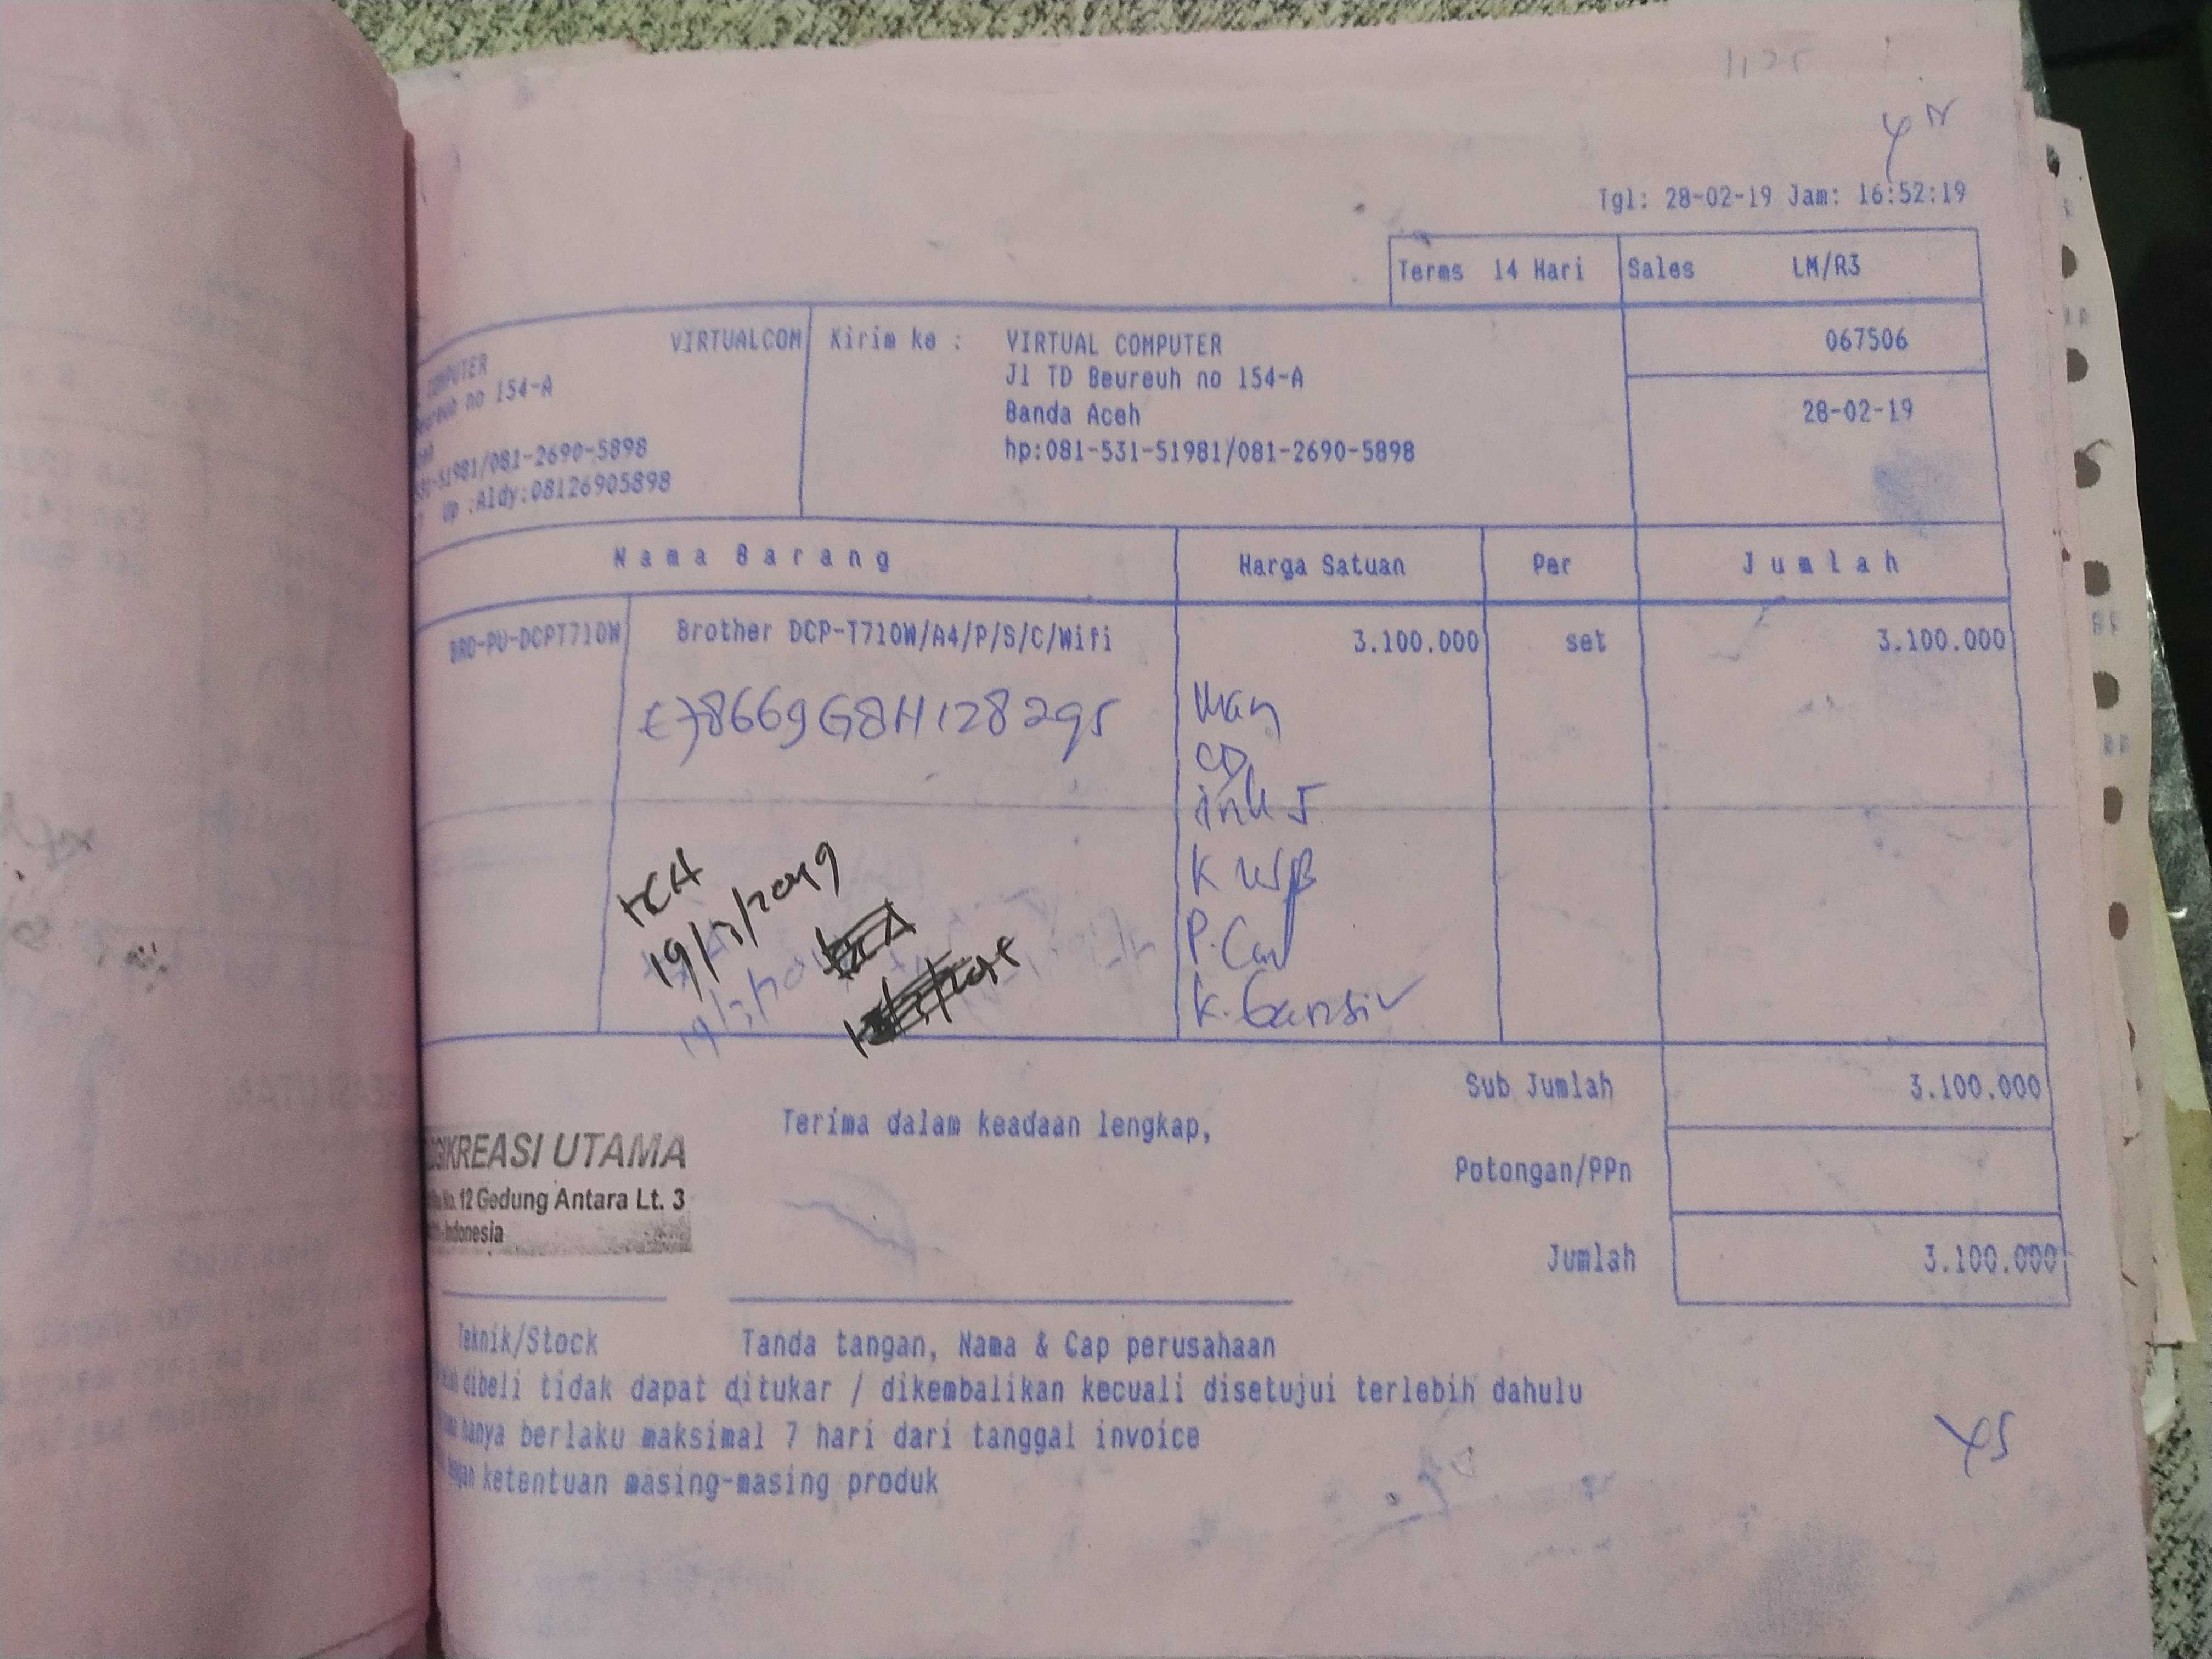 Tgl: 28-02-19 Jam: 16:52:19
Terms 14 Hari Sales LM/R3
VIRTUALCOM
COMPUTER
no 154-A
-51981/081-2690-5898
Up :Aldy:08126905898
Kirim ke : VIRTUAL COMPUTER
Jl TD Beureuh no 154-A
Banda Aceh
hp:081-531-51981/081-2690-5898
067506
28-02-19
Nama Barang Harga Satuan Per Jumlah
BRO-PU-DCPT710W Brother DCP-T710W/A4/P/S/C/Wifi 3.100.000 set 3.100.000
E78669G8H128295
CD
ink 5
K USB
K. Garansi
19/3/2019
Sub Jumlah 3.100.000
Terima dalam keadaan lengkap,
Potongan/PPn
Jumlah 3.100.000
KREASI UTAMA
No. 12 Gedung Antara Lt. 3
Indonesia
Teknik/Stock Tanda tangan, Nama & Cap perusahaan
dibeli tidak dapat ditukar / dikembalikan kecuali disetujui terlebih dahulu
hanya berlaku maksimal 7 hari dari tanggal invoice
ketentuan masing-masing produk